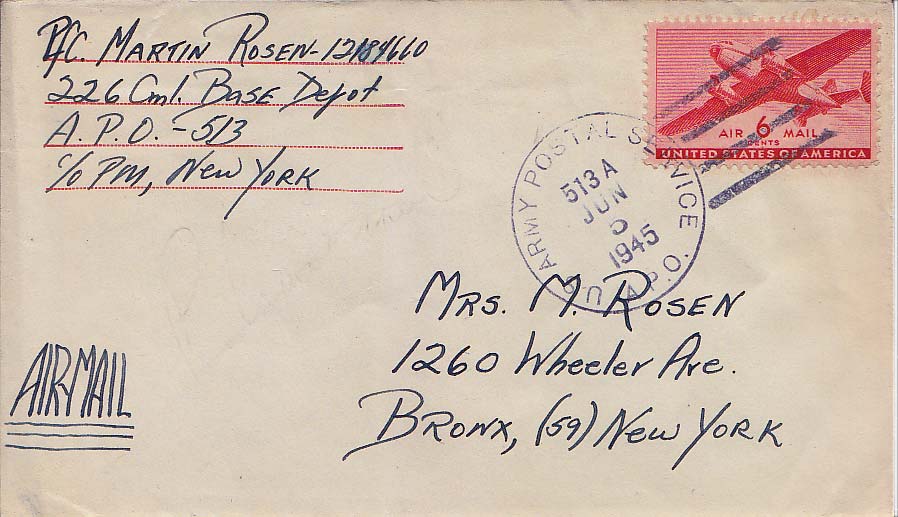 Pfc. MARTIN ROSEN-12189660
226 Cml. BASE Depot
A.P.O.-513
c/o PM, New YORK
AIR 6 MAIL
CENTS
UNITED STATES OF AMERICA
U.S. ARMY POSTAL SERVICE A.P.O.
513A
JUN
5
1945
MRS. M. ROSEN
1260 Wheeler Ave.
BRONX, (59) New YORK
AIRMAIL